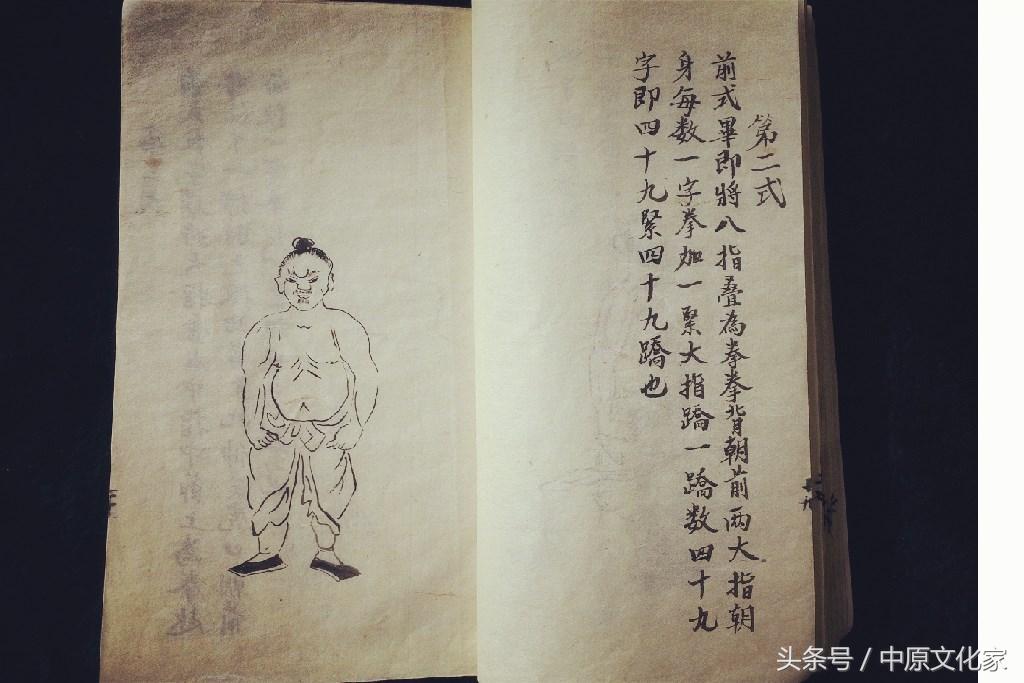 第二式
前式畢即將八指疊為拳拳背朝前两大指朝
身每数一字拳加一緊大指蹻一蹻数四十九
字即四十九緊四十九蹻也
头条号 / 中原文化家